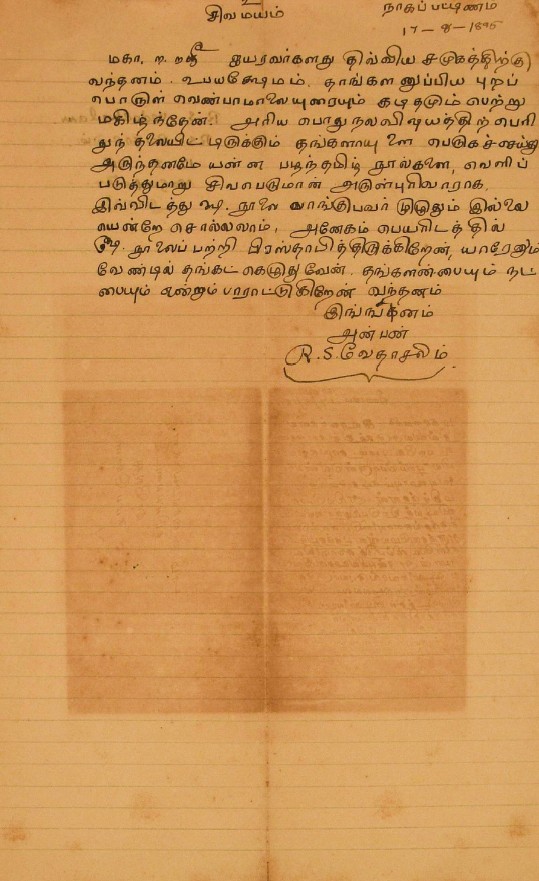 உ
சிவமயம்
நாகப்பட்டிணம்
17-8-1895
மகா. ற றஸ்ரீ துயரவர்களது திவ்விய சமுகத்திற்கு
வந்தனம். உபயக்ஷேமம். தாங்களனுப்பிய புறப்
பொருள் வெண்பாமாலையுரையும் கடிதமும் பெற்று
மகிழ்ந்தேன். அரிய பொதுநலவிஷயத்திற் பெரி
துந் தலையிட்டிருக்கும் தங்களாயு ளை பெருகச்செய்து
அருந்தனமே யன்ன படிந்தமிழ் நூல்களை, வெளிப்
படுத்துமாறு சிவபெருமான் அருள்புரிவாராக.
இவ்விடத்து ஷை. நூலை வாங்குபவர் முழுதும் இல்லை
யென்றே சொல்லலாம், அனேகம் பெயரிடத்தில்
ஷை. நூலைப்பற்றி பிரஸ்தாபித்திருக்கிறேன், யாரேனும்
வேண்டில் தங்கட் கெழுதுவேன். தங்களன்பையும் நட்
பையும் என்றும் பாராட்டுகிறேன் வந்தனம்
இங்ஙனம்
அன்பன்
R.S.வேதாசலம்